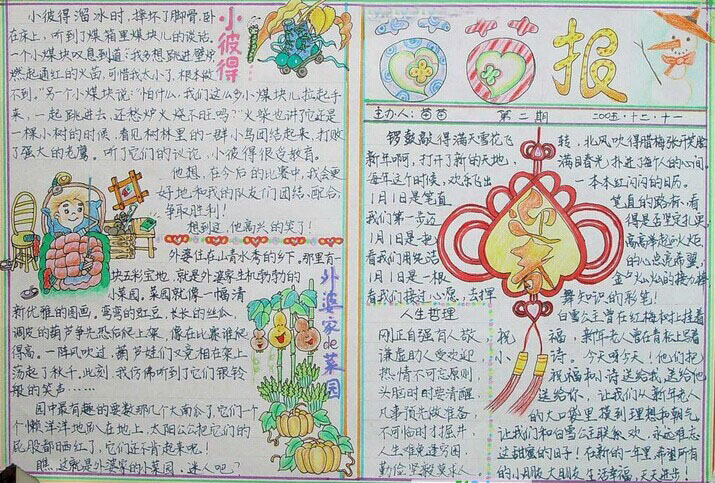 小彼得溜冰时,摔坏了脚骨,卧
在床上,听到了煤箱里煤块儿的谈话。
一个小煤块叹息到道:"我多想跳进壁炉
燃起通红的火苗,可惜我太小了,根本做
不到。"另一个小煤块说:"怕什么,我们这么多小煤块儿拉起手
来,一起跳进去,还愁炉火燥不旺吗?"火柴也讲了它还是
一棵小树的时候,看见树林里的一群小鸟团结起来,打败
了强大的老鹰。听了它们的议论,小彼得很受教育。
他想,在今后的比赛中,我会更
好地和我的队友们团结、配合,
争取胜利!
想到这,他高兴的笑了!
小彼得…
外婆住在山青水秀的乡下,那里有一
块五彩宝地,就是外婆家生机勃勃的
小菜园。菜园就像一幅清
新优雅的图画。弯弯的豇豆,长长的丝瓜,
调皮的葫芦争先恐后爬上架,像在比赛谁爬
得高。一阵风吹过,葫芦娃们又竞相在架上
荡起了秋千。此刻,我仿佛听到了它们银铃
般的笑声……
园中最有趣的要数那几个大南瓜了,它们一个
个懒洋洋地卧在地上,太阳公公把它们的
屁股都晒红了,它们还不肯起来呢!
瞧,这就是外婆家的小菜园,迷人吧?
外婆家de菜园
报
主办人:苗苗 第二期 2005.十二.十一
锣鼓敲得满天雪花飞转,北风吹得腊梅张开笑脸
新年啊,打开了新的天地,满目春光扑进了每个人的心间。
每年这个时候,欢乐飞出一本本红闪闪的日历。
1月1日是笔直笔直的路标,看
我们第一步迈得是否坚定扎实,
1月1日是一把高高举起的火炬,
看我们用纯洁的心点亮希望,
1月1日是一根金灿灿的接力棒
看我们接过心愿,去挥舞知识的彩笔!
迎春
人生哲理
刚正自强有人敬,
谦虚助人受欢迎
热情不可忘原则,
头脑时时要清醒
凡事预先做准备,
不可临时才掘井
人生难免遭穷困
勤俭坚毅莫求人
白雪公主曾在红梅树上挂着
祝福,新年老人曾在青松上写着
小诗。今天呀今天!他们把
祝福和小诗送给我,送给他
送给你,让我们从新年老人
的大口袋里摸到理想和朝气
让我们和白雪公主联欢,永远难忘
这甜蜜的日子!在新的一年里希望所有
的小朋友大朋友生活幸福,天天进步!